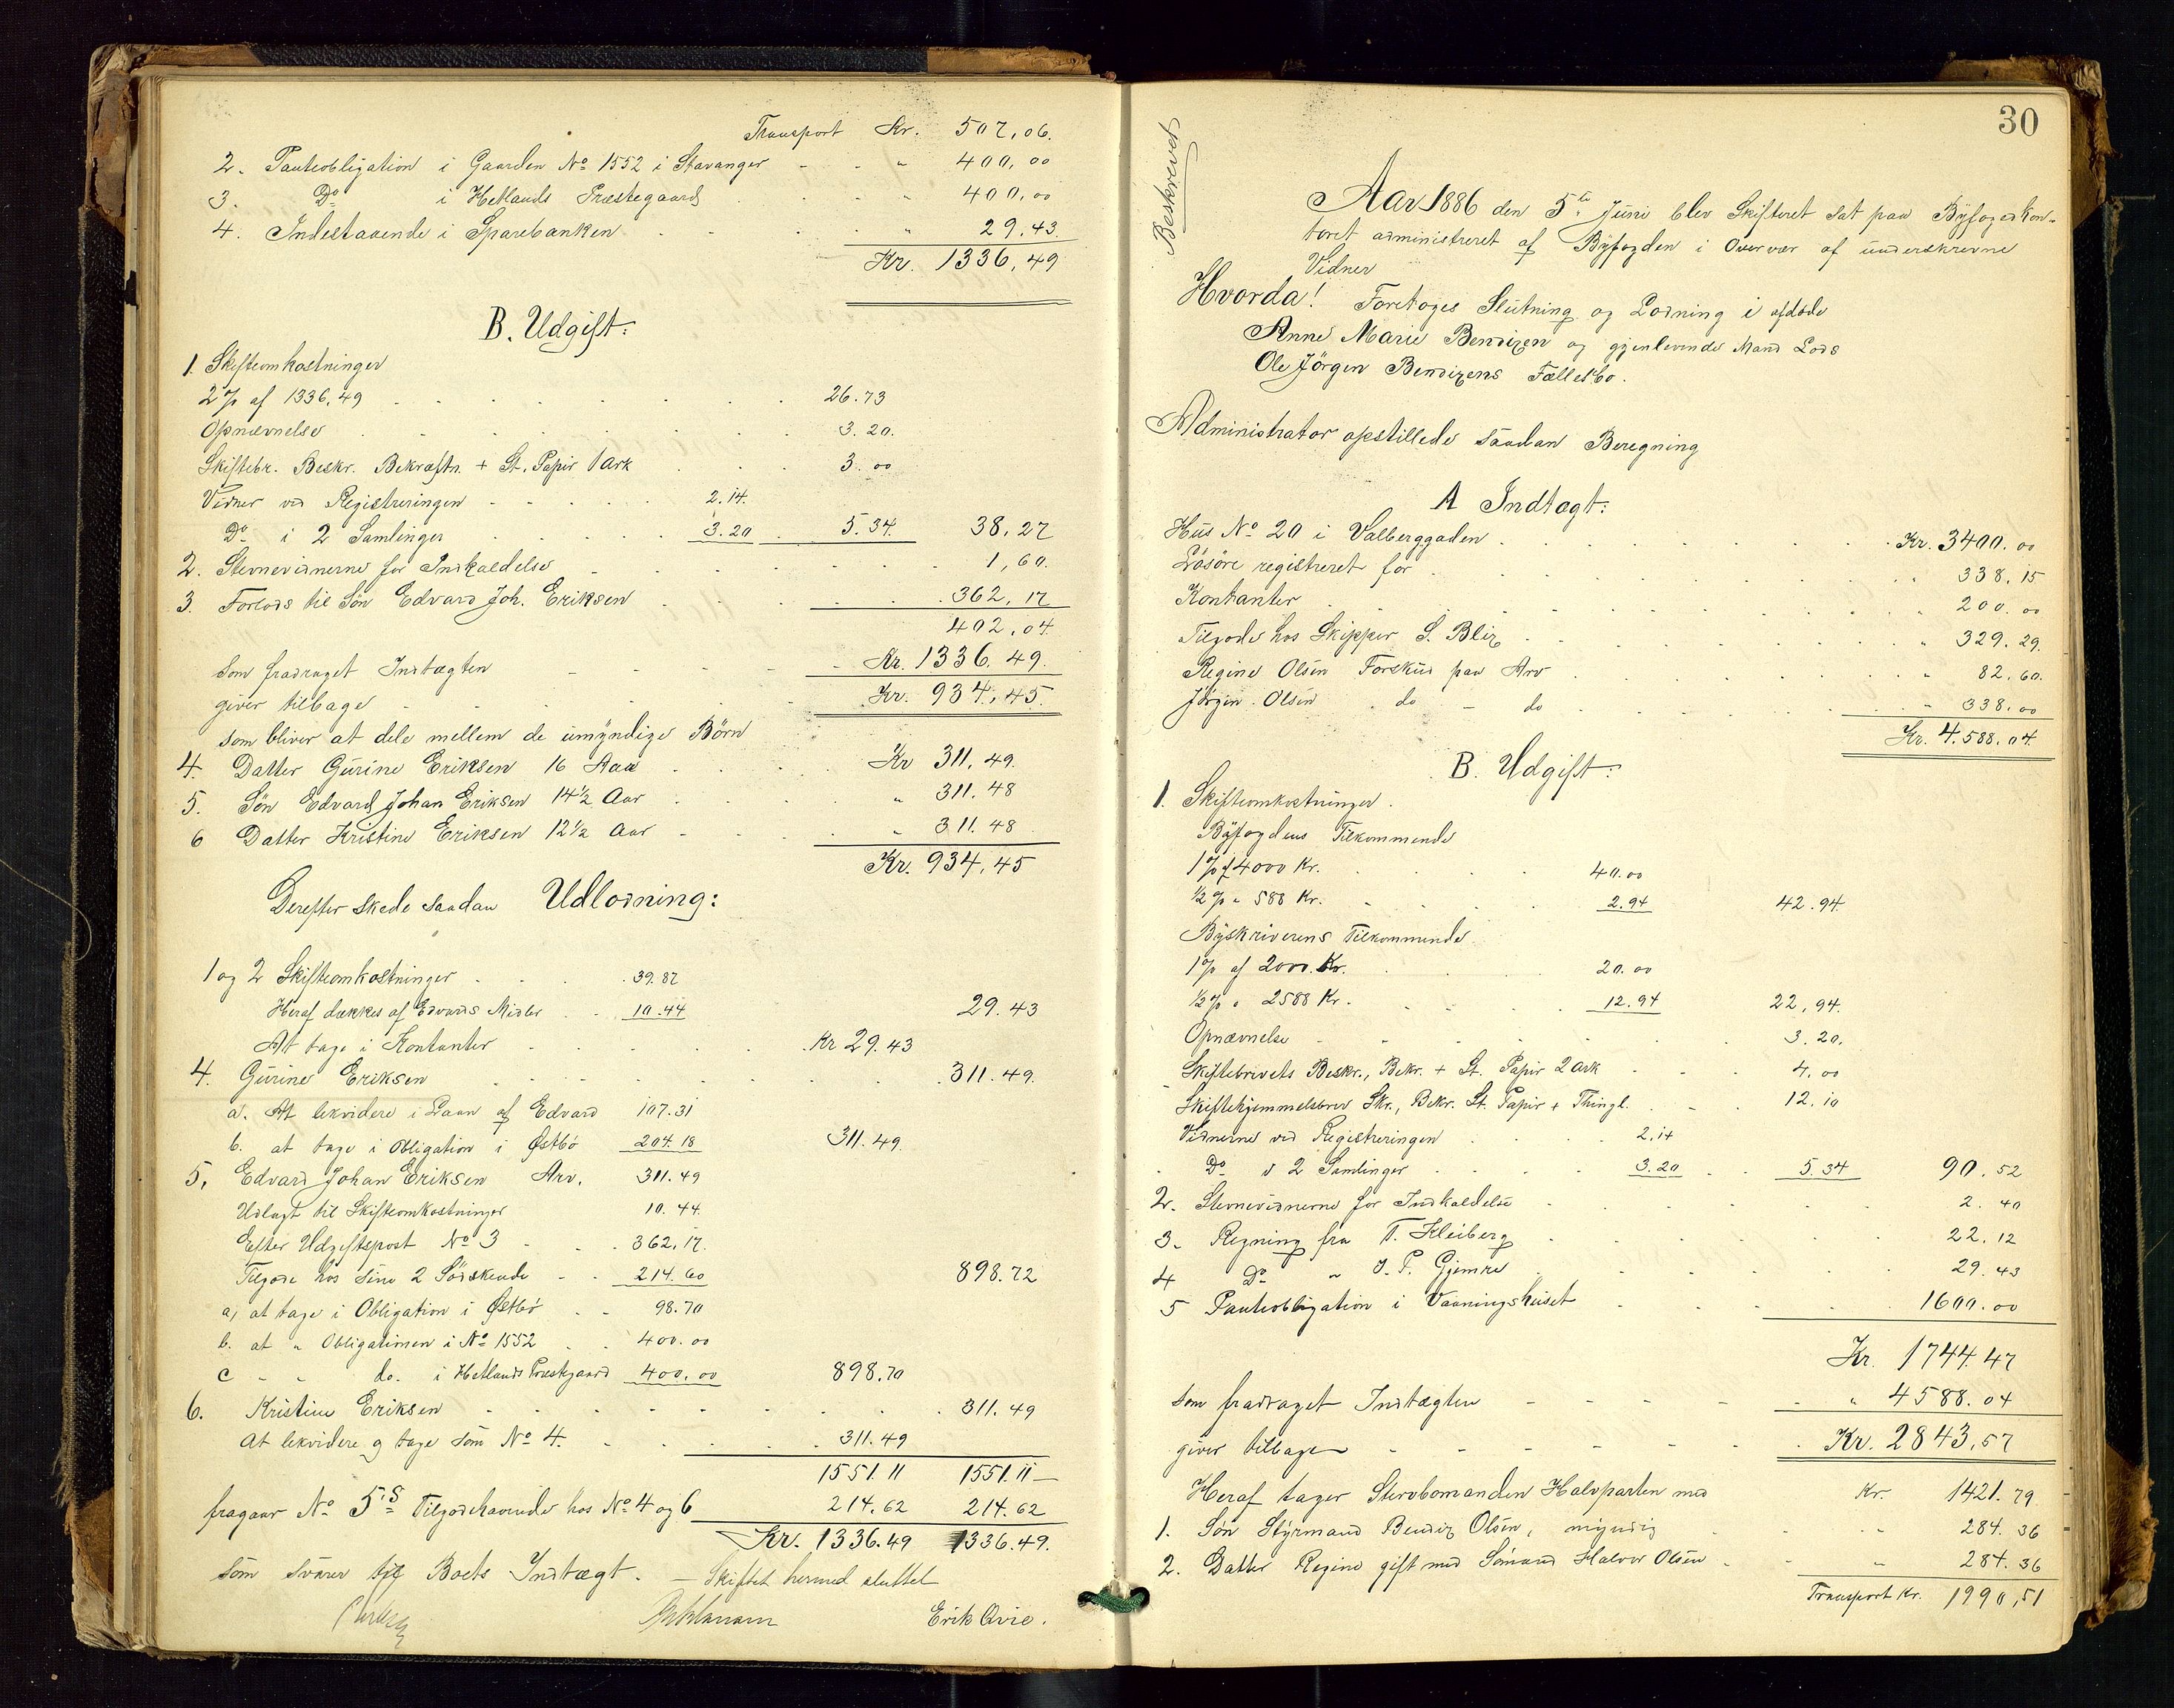 Transport Kr. 507,06.
2. Panteobligation i Gaarden No 1552 i Stavanger - - „ 400,00
3. Do i Hetlands Præstegaard „ 400,00
4. Indestaaende i Sparebanken „ 29.43.
Kr. 1336,49
B. Udgift:
1. Skifteomkostninger
2 % af 1336,49 26.73
Opnævnelse 3.20.
Skiftebr. Beskr. Bekræftn. + St. Papir 1 Ark 3.00
Vidner ved Registreringen 2.14.
Do i 2 Samlinger 3.20 5.34. 38,27
2. Stevnevidnerne for Indkaldelse 1,60.
3. Forlods til Søn Edvard Joh. Eriksen 362,17
402,04
som fradraget Indtægten Kr. 1336.49.
giver tilbage Kr. 934,45.
som bliver at dele mellem de umyndige Børn
4. Datter Gurine Eriksen 16 Aar Kr 311,49.
5. Søn Edvard Johan Eriksen 14½ Aar „ 311.48
6 Datter Kristine Eriksen 12½ Aar „ 311.48
Kr. 934,45
Derefter skede saadan Udlodning:
1 og 2 Skifteomkostninger 39.87
Heraf dækkes af Edvards Midler 10.44 29.43
At tage i Kontanter Kr 29.43
4. Gurine Eriksen 311.49.
a. At likvidere i Laan af Edvard 107.31
b. at tage i Obligation i Østbø 204.18 311.49.
5. Edvard Johan Eriksen Arv. 311.49
Udlagt til Skifteomkostninger 10.44.
Efter Udgiftspost No 3 362,17.
Tilgode hos sine 2 Södskende 214.60 898.72
a, at tage i Obligation i Østbø 98.70
b. at „ Obligationen i No 1552 400.00
c - „ do. i Hetlands Præstgaard 400,00 898.70
6. Kristine Eriksen 311.49
At likvidere og tage som No 4. 311.49
1551.11 1551.11
fragaar No 5's Tilgodehavende hos No 4 og 6 214.62 214.62
Kr. 1336.49 1336.49.
som svarer til Boets Indtægt. — Skiftet hermed sluttet
Erik Qvie.
30
Beskrevet
Aar 1886 den 5te Juni blev Skifteret sat paa Byfogedkon-
toret administreret af Byfogden i Overvær af underskrevne
Vidner
Hvorda! Foretoges Slutning og Lodning i afdøde
Anne Marie Bendixen og gjenlevende Mand Lods
Ole Jörgen Bendixens Fællesbo.
Administrator opstillede saadan Beregning
A Indtægt:
Hus No 20 i Valberggaden Kr. 3400.00
Lösöre registreret for „ 338,15
Kontanter „ 200.00
Tilgode hos Skipper S. Blix „ 329.29.
Regine Olsen Forskud paa Arv „ 82,60.
Jørgen Olsen do - do „ 338.00
Kr. 4.588.04.
B. Udgift:
1. Skifteomkostninger.
Byfogdens Tilkommende
1 % af 4000 Kr. 40.00
½ % „ 588 Kr. 2.94 42.94.
Byskriverens Tilkommende
1 % af 2000 Kr. 20.00
½ % „ 2588 Kr. 12.94 22,94.
Opnævnelse 3.20.
Skiftebrevets Beskr., Bekr. + St. Papir 2 Ark 4,00
Skiftehjemmelsbrev Skr., Bekr. St. Papir + Thingl. 12.10
Vidnerne ved Registreringen 2.14
Do i 2 Samlinger 3.20 5.34 90.52
2. Stevnevidnerne for Indkaldelse 2.40
3. Regning fra T. Kleiberg 22.12
4 Do „ J. P. Gjemre 29.43
5 Panteobligation i Vaaningshuset 1600.00
Kr. 1744.47
som fradraget Indtægten „ 4588.04
giver tilbage Kr. 2843,57
Heraf tager Stervbomanden Halvparten med Kr. 1421.79.
1. Søn Styrmand Bendix Olsen, myndig „ 284.36
2. Datter Regine gift med Sömand Halvor Olsen „ 284.36
Transport Kr. 1990,51